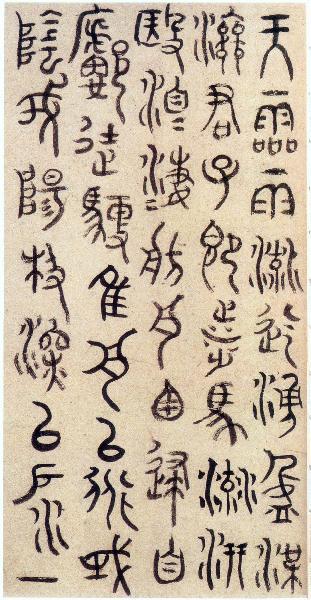 天霝雨流迄湧盈渫
濟君子即涉馬流汧
殹洎淒舫舟囪逮自
廓徒馭隹舟以行或
陰或陽极深以戶水一